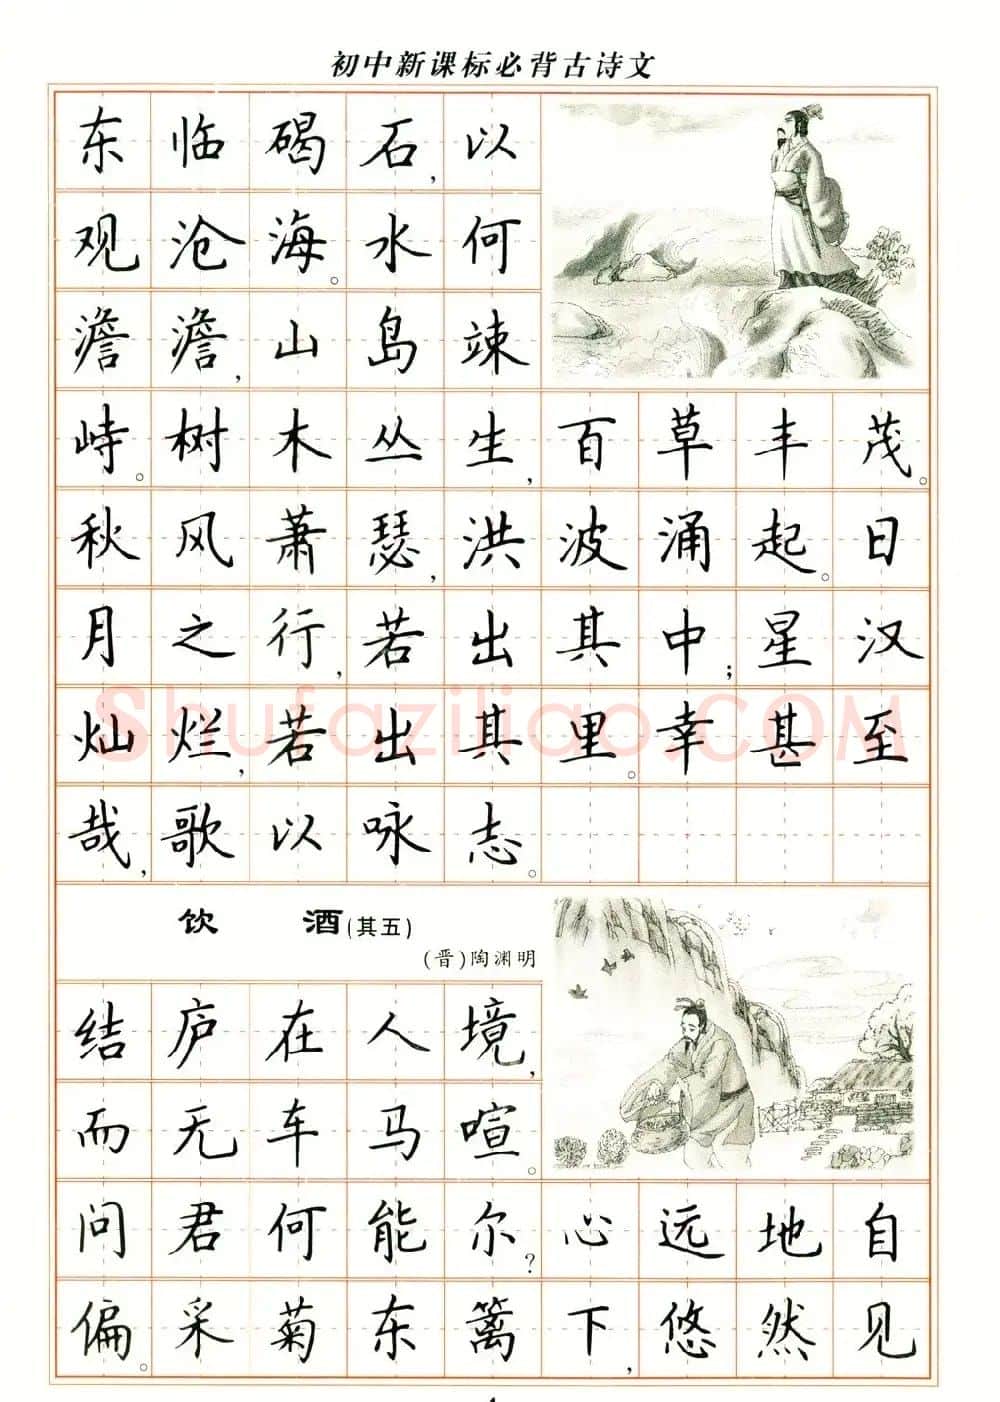 初中新课标必背古诗文
东临碣石，以
观沧海。水何
澹澹，山岛竦
峙。树木丛生，百草丰茂。
秋风萧瑟，洪波涌起。日
月之行，若出其中；星汉
灿烂，若出其里。幸甚至
哉，歌以咏志。
shufaziliao.COM
饮 酒(其五)
(晋)陶渊明
结庐在人境，
而无车马喧。
问君何能尔？心远地自
偏。采菊东篱下，悠然见